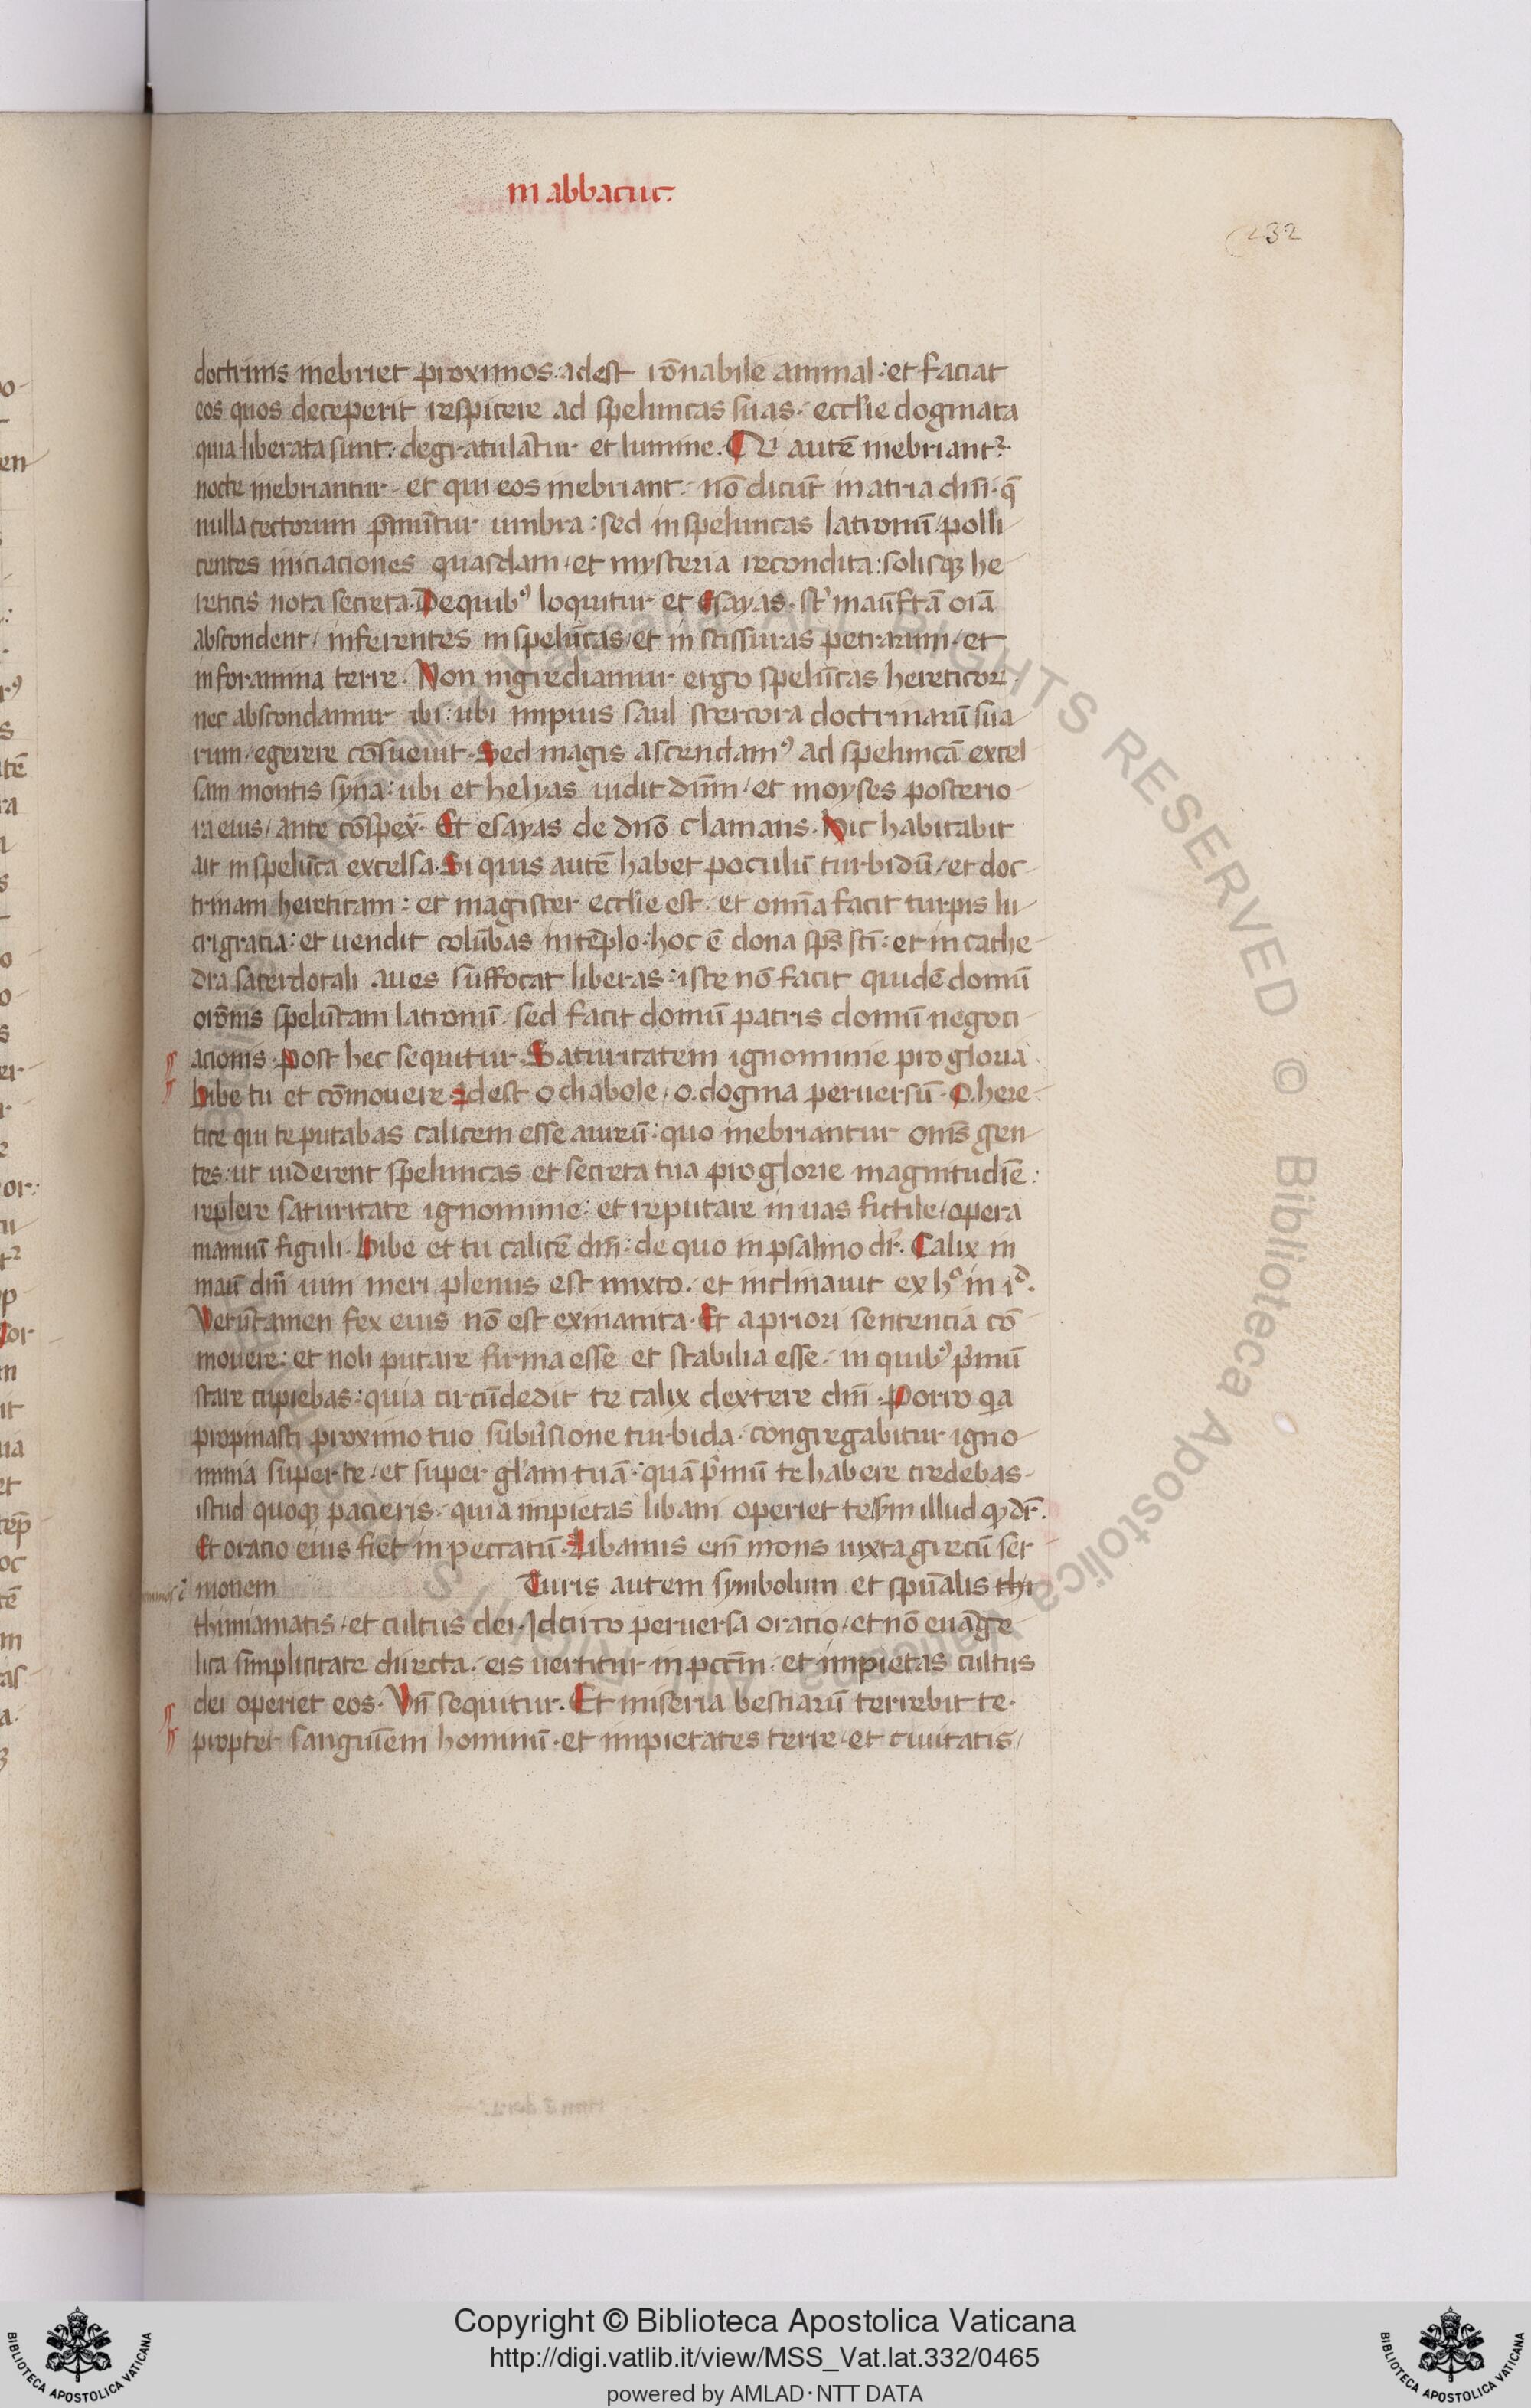 in abbacuc.
232
doctrinis inebriet proximos: id est rōnabile animal: et faciat
eos quos deceperit respicere ad speluncas suas. eccl'ie dogmata
quia liberata sunt: de gratulant̄ur et lumine. Qi autē inebriant᷑
nocte inebriantur. et qui eos inebriant. nō dicūt in atria dn̄i. q̄
nulla tectorum p̄muntur umbra: sed in speluncas latronū polli
centes iniciaciones quasdam, et mysteria recondita: solisq; he
reticis nota secreta. De quib⁹ loquitur et esayas. st' manu fcā oīa
abscondent, inferentes in speluncas, et in scissuras petrarum, et
in foramina terre. Non ingrediamur ergo speluncas hereticoꝝ.
nec abscondamur ibi: ubi impius saul stercora doctrinarū sua
rum, egerere cōsueuit. Sed magis ascendam⁹ ad speluncā excel
sam montis syna: ubi et helyas uidit dn̄m, et moyses posterio
ra eius, ante cōspex̄. Et esayas de dn̄o clamans. Hic habitabit
ait in spelūca excelsa. Si quis autē habet poculū turbidū, et doc
trinam hereticam: et magister eccl'ie est. et omīa facit turpis lu
cri gratia: et uendit colūbas in tēplo: hoc ē dona sp̄s sc̄i: et in cathe
dra sacerdotali aues suffocat liberas: iste nō facit quidē domū
orōnis speluncam latronū, sed facit domū patris domū negoci
acionis. Post hec sequitur. Saturitatem ignominie pro gloria
bibe tu et cōmouere. Idest o diabole, o dogma peruersū. O here
tice qui te putabas calicem esse aureū: quo inebriantur om̄s gen
tes: ut uiderent speluncas et secreta tua pro glorie magnitudīe:
replere saturitate ignominie: et reputare in uas fictile, opera
manuū figuli. Bibe et tu calicē dn̄i: de quo in psalmo dr̄. Calix in
manū dn̄i uini meri plenus est mixto. et inclinauit ex h° in id.
Verūtamen fex eius nō est exinanita. Et a priori sentencia cō
mouere: et noli putare firma esse et stabilia esse. in quib⁹ p̄mū
stare cupiebas: quia circūdedit te calix dextere dn̄i. Porro qa
propinasti proximo tuo subūsione turbida. congregabitur igno
minia super te, et super gl'am tuā: quā p̄mū te habere credebas.
istud quoq; pacieris. quia impietas libani operiet te scdm illud q dr̄.
Et oratio eius fiet in peccatū. Libanus em̄ mons iuxta grecū ser
monem Turis autem symbolum et spūalis thi
thimiamatis, et cultus dei. Idcirco peruersa oracio, et nō euāge
lica simplicitate directa. eis uertitur in pccm̄. et impietas cultus
dei operiet eos. Vn̄ sequitur. Et miseria bestiarū terrebit te.
propter sanguīem hominū. et impietates terre, et ciuitatis,
Copyright © Biblioteca Apostolica Vaticana
http://digi.vatlib.it/view/MSS_Vat.lat.332/0465
powered by AMLAD·NTT DATA